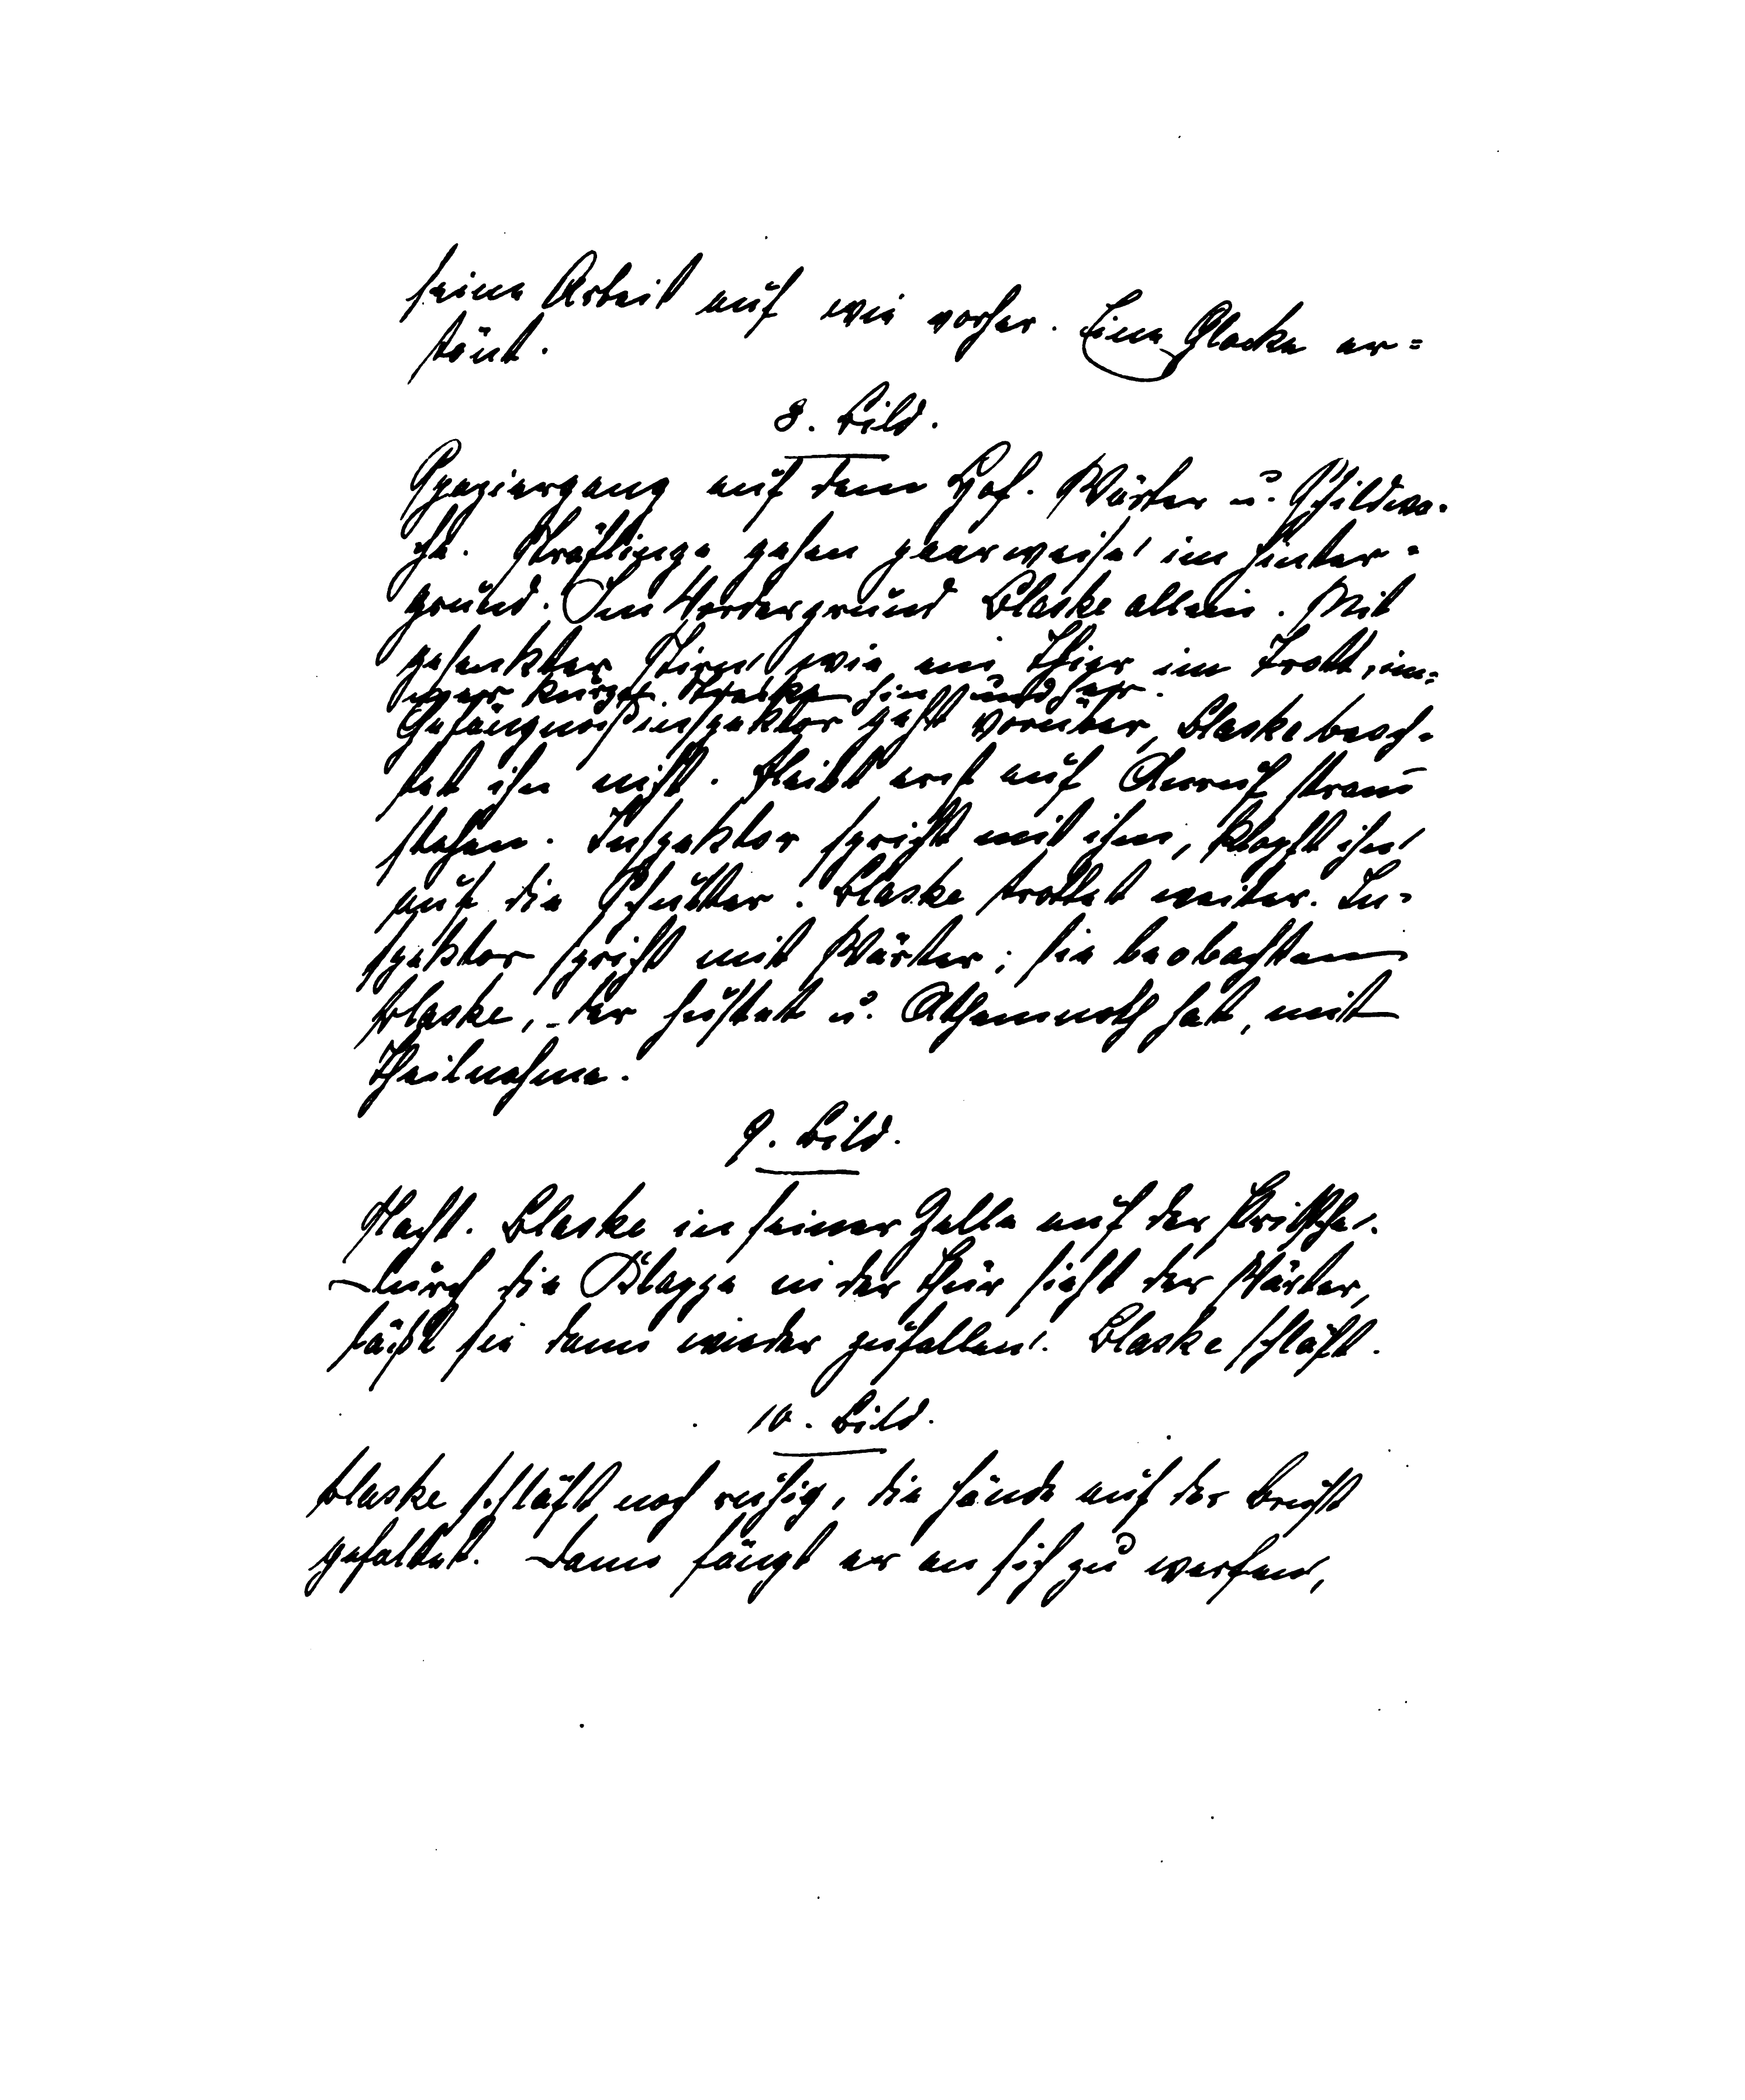 seine Arbeit auf wie vorher. Eine Glocke er=
tönt.
8. Bild.
Spaziergang auf dem Hof. Wärter u. Schildwa-
che. Sträflinge gehen paarweise im Hinter-
grund. Im Vordergrund Blaske allein. Mit
gesenkter Stirn wie ein Thier im Trott, im=
mer kurze Strecke hin und her.
Gefängnißinspektor geht vorüber, Blaske beach-
tet ihn nicht. Bleibt erst auf Anruf stram̄
stehen. Inspektor spricht mit ihm, klopft ihn
auf die Schulter. Blaske trottet weiter. In-
spektor spricht mit Wärter; sie beobachten
Blaske, der hustet u. Athemnoth hat, mit
Theilnahme.
9. Bild.
Nacht. Blaske in seiner Zelle auf der Pritsche.
Durch die Klappe in der Thür sieht der Wärter,
läßt sie dann wieder zufallen. Blaske schläft.
10. Bild.
Blaske schläft noch ruhig, die Hände auf der Brust
gefaltet. Dann fängt er an sich zu werfen,